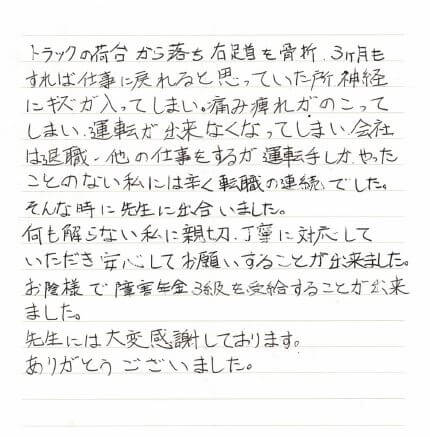 トラックの荷台から落ち右足首を骨折、3ヶ月も
すれば仕事に戻れると思っていた所神経
にキズが入ってしまい。痛み痺れがのこって
しまい、運転が出来なくなってしまい、会社
は退職、他の仕事をするが運転手しかやった
ことのない私には辛く転職の連続でした。
そんな時に先生に出合いました。
何も解らない私に親切、丁寧に対応して
いただき安心してお願いすることが出来ました。
お陰様で障害年金3級を受給することが出来
ました。
先生には大変感謝しております。
ありがとうございました。